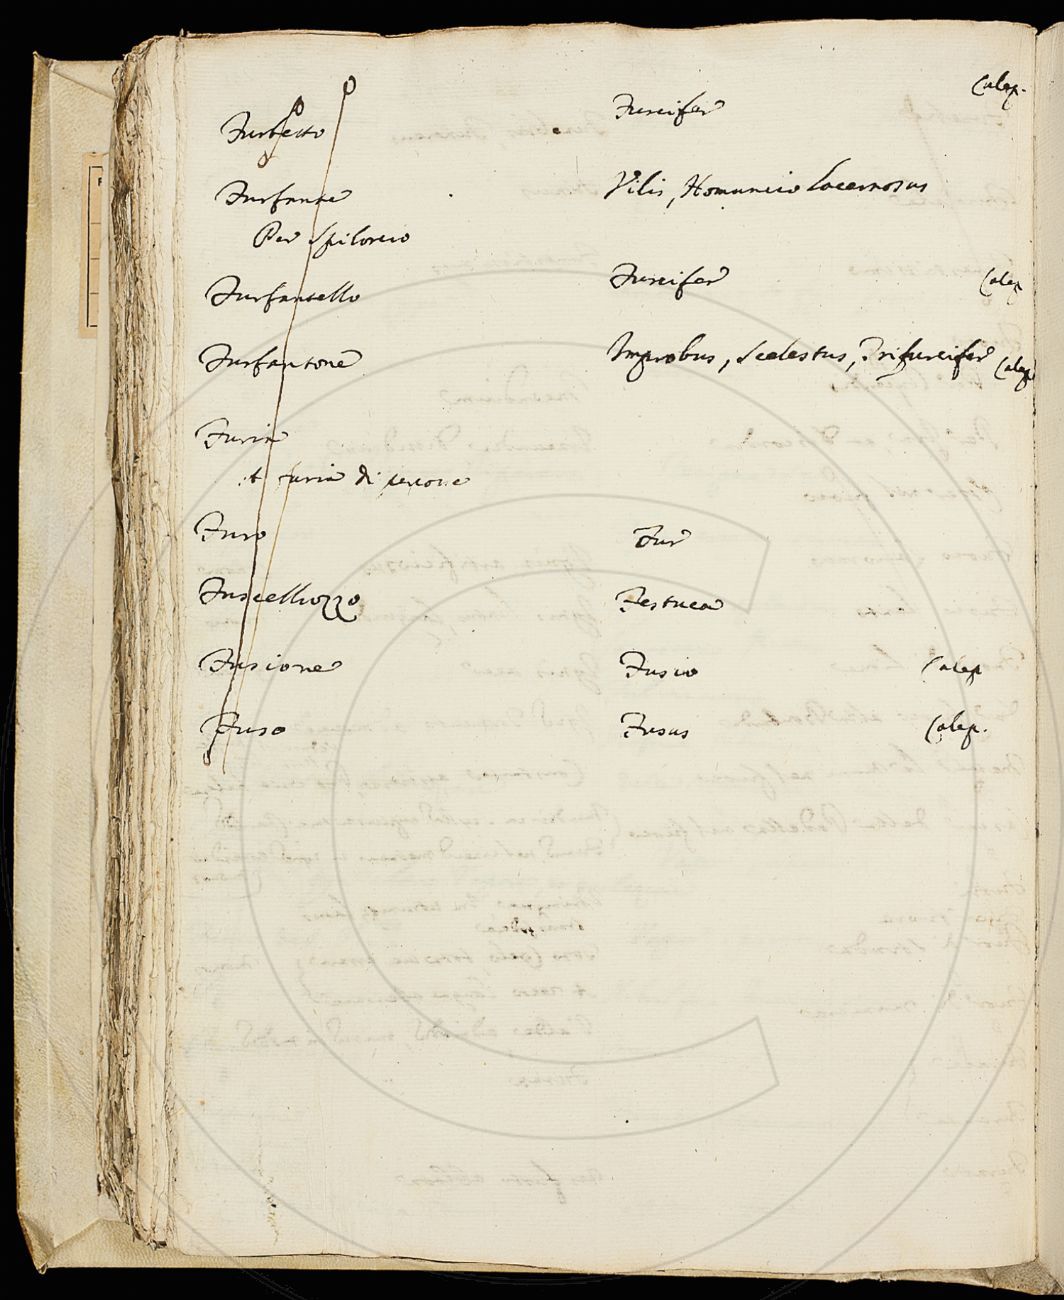 Furbetto Furcifer Calep.
Furfante Vilis, Homuncio Lacernosus
Per Spilorcio
Furfantello Furcifer Calep
Furfantone Improbus, Scelestus, Trifurcifer Calep
Furia
A furia di persone
Furo Fur
Fuscelluzzo Festuca
Fusione Fusio Calep
Fuso Fusus Calep.